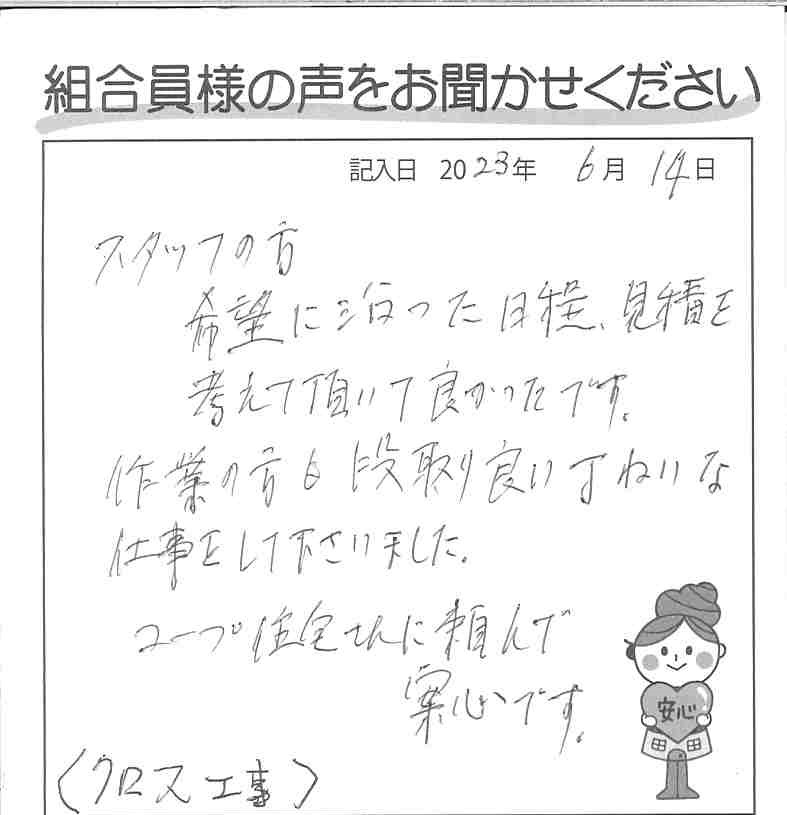 組合員様の声をお聞かせください
記入日 2023年 6月 14日
スタッフの方
希望に沿った日程、見積を
考えて頂いて良かったです。
作業の方も段取り良いていねいな
仕事をして下さいました。
コープ住宅さんに頼んで
安心です。
安心
(クロス工事)